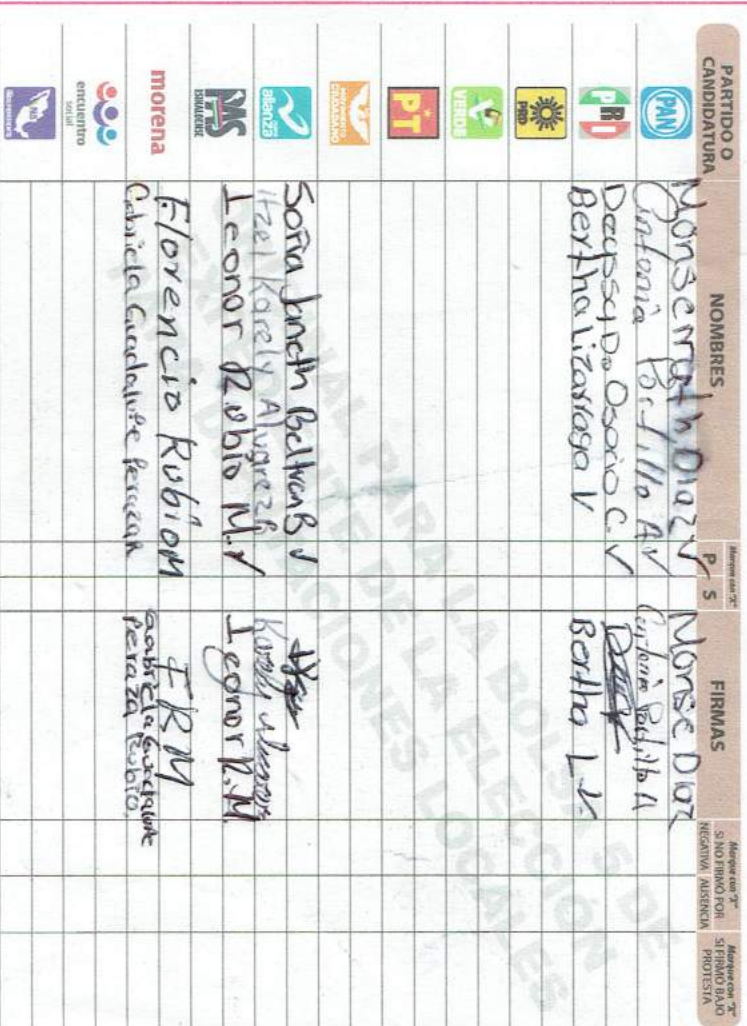 PARTIDO O CANDIDATURA
NOMBRES
Marque con "X"
P S
FIRMAS
Marque con "X"
SI NO FIRMÓ POR
NEGATIVA AUSENCIA
Marque con "X"
SI FIRMÓ BAJO PROTESTA
PAN
Monserrath Diaz ✓ Monse Diaz
Antonia Portillo A ✓ Antonia Portillo A
PRI
Deyssy D. Osorio C. ✓
Bertha Lizarraga V Bertha L V.
PRD
VERDE
PT
MOVIMIENTO CIUDADANO
alianza
Sofia Janeth Beltran B ✓
Itzel Karely Alvarez Karely
PAS
SINALOENSE
Leonor Rubio M. ✓ Leonor R.M.
morena
Florencio Rubio M FRM
Gabriela Guadalupe Peraza R Gabriela Guadalupe Peraza Rubio.
encuentro social
ORIGINAL PARA LA BOLSA 5 DE
EXPEDIENTE DE LA ELECCIÓN
PARA DIPUTACIONES LOCALES